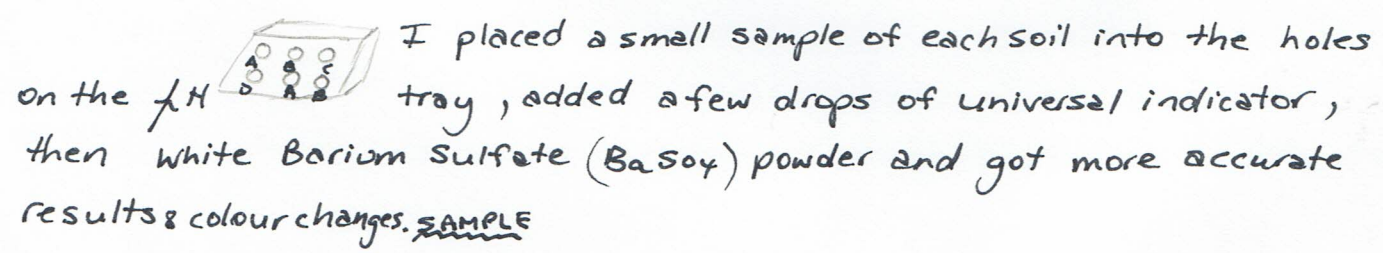 I placed a small sample of each soil into the holes
on the pH tray, added a few drops of universal indicator,
then white Barium Sulfate (BaSO4) powder and got more accurate
results & colour changes. SAMPLE
A B C
D A B